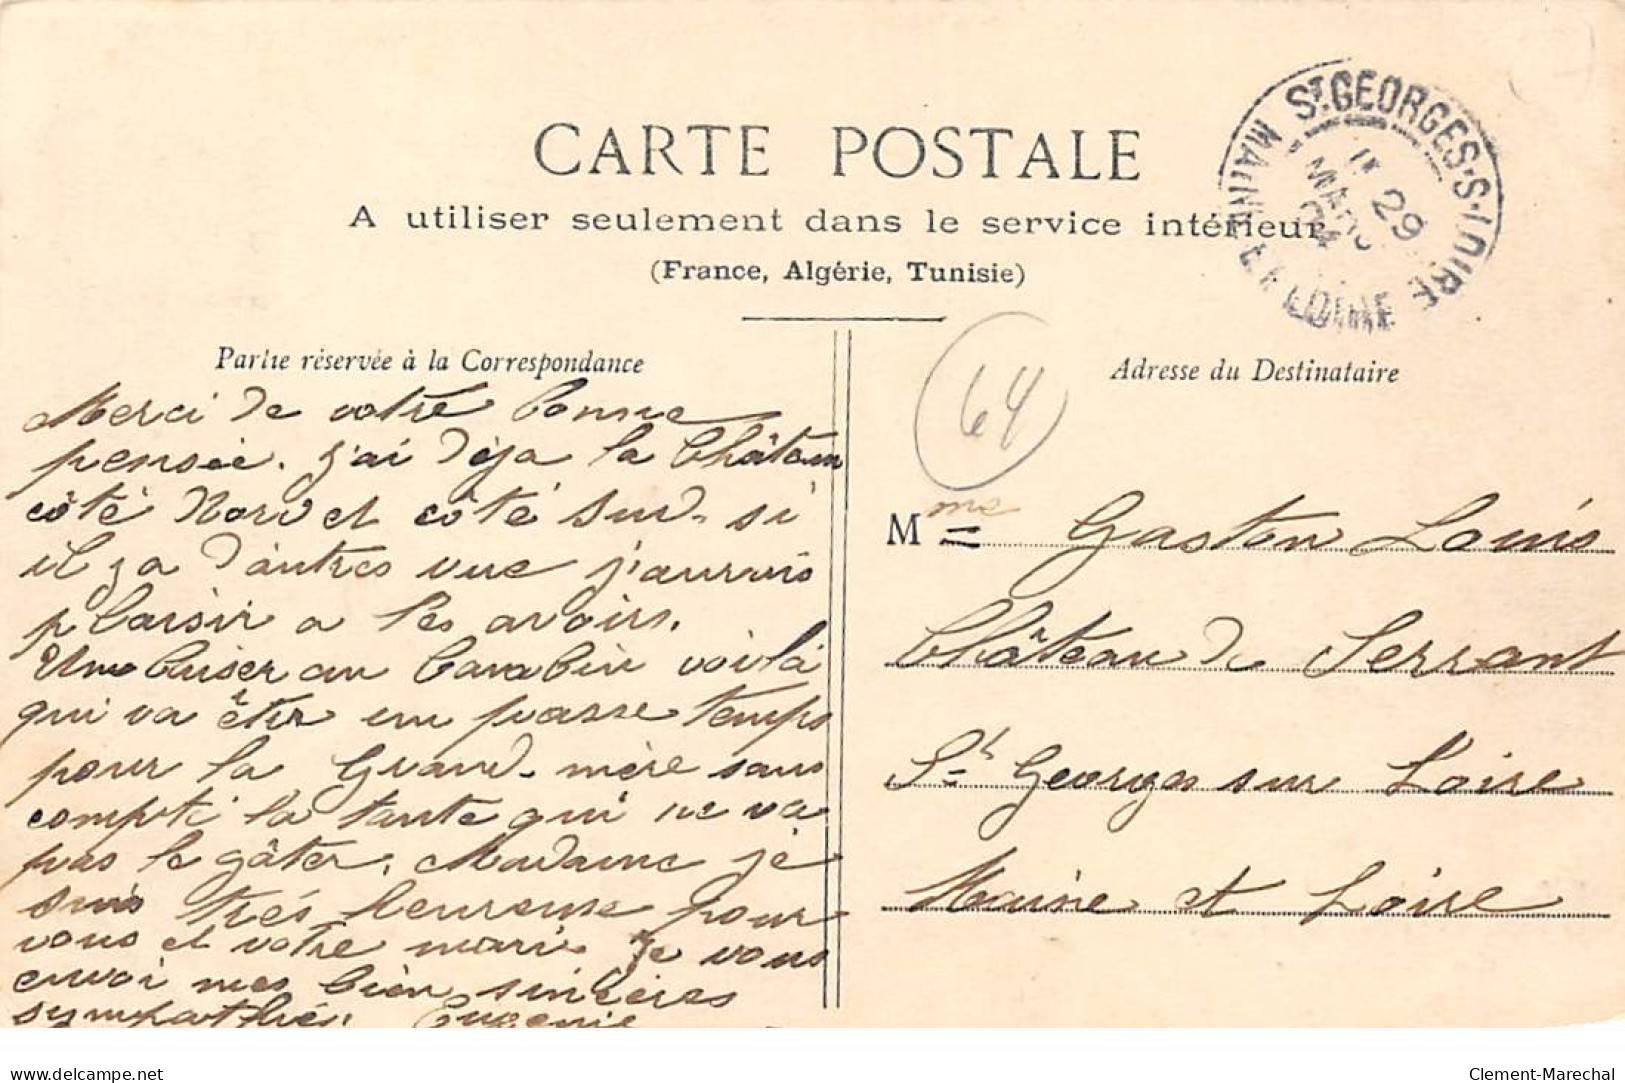 CARTE POSTALE
A utiliser seulement dans le service intérieur
(France, Algérie, Tunisie)
ST GEORGES-S-LOIRE
29
MARS
04
MAINE ET LOIRE
Partie réservée à la Correspondance
Merci de votre bonne
pensée. j'ai déja la Château
côté Nord et côté Sud. si
il y a d'autres vue j'aurais
plaisir a les avoirs.
Une baiser au bambin voilà
qui va être un passe temps
pour la Grand-mère sans
compté la tante qui ne va
pas le gâter. Madame je
suis trés heureuse pour
vous et votre mari. Je vous
envoi mes bien sincères
sympathies. Eugenie
Adresse du Destinataire
64
Mme Gaston Louis
Château de Serrant
St Georges sur Loire
Maine et Loire
delcampe.net
Clement-Marechal